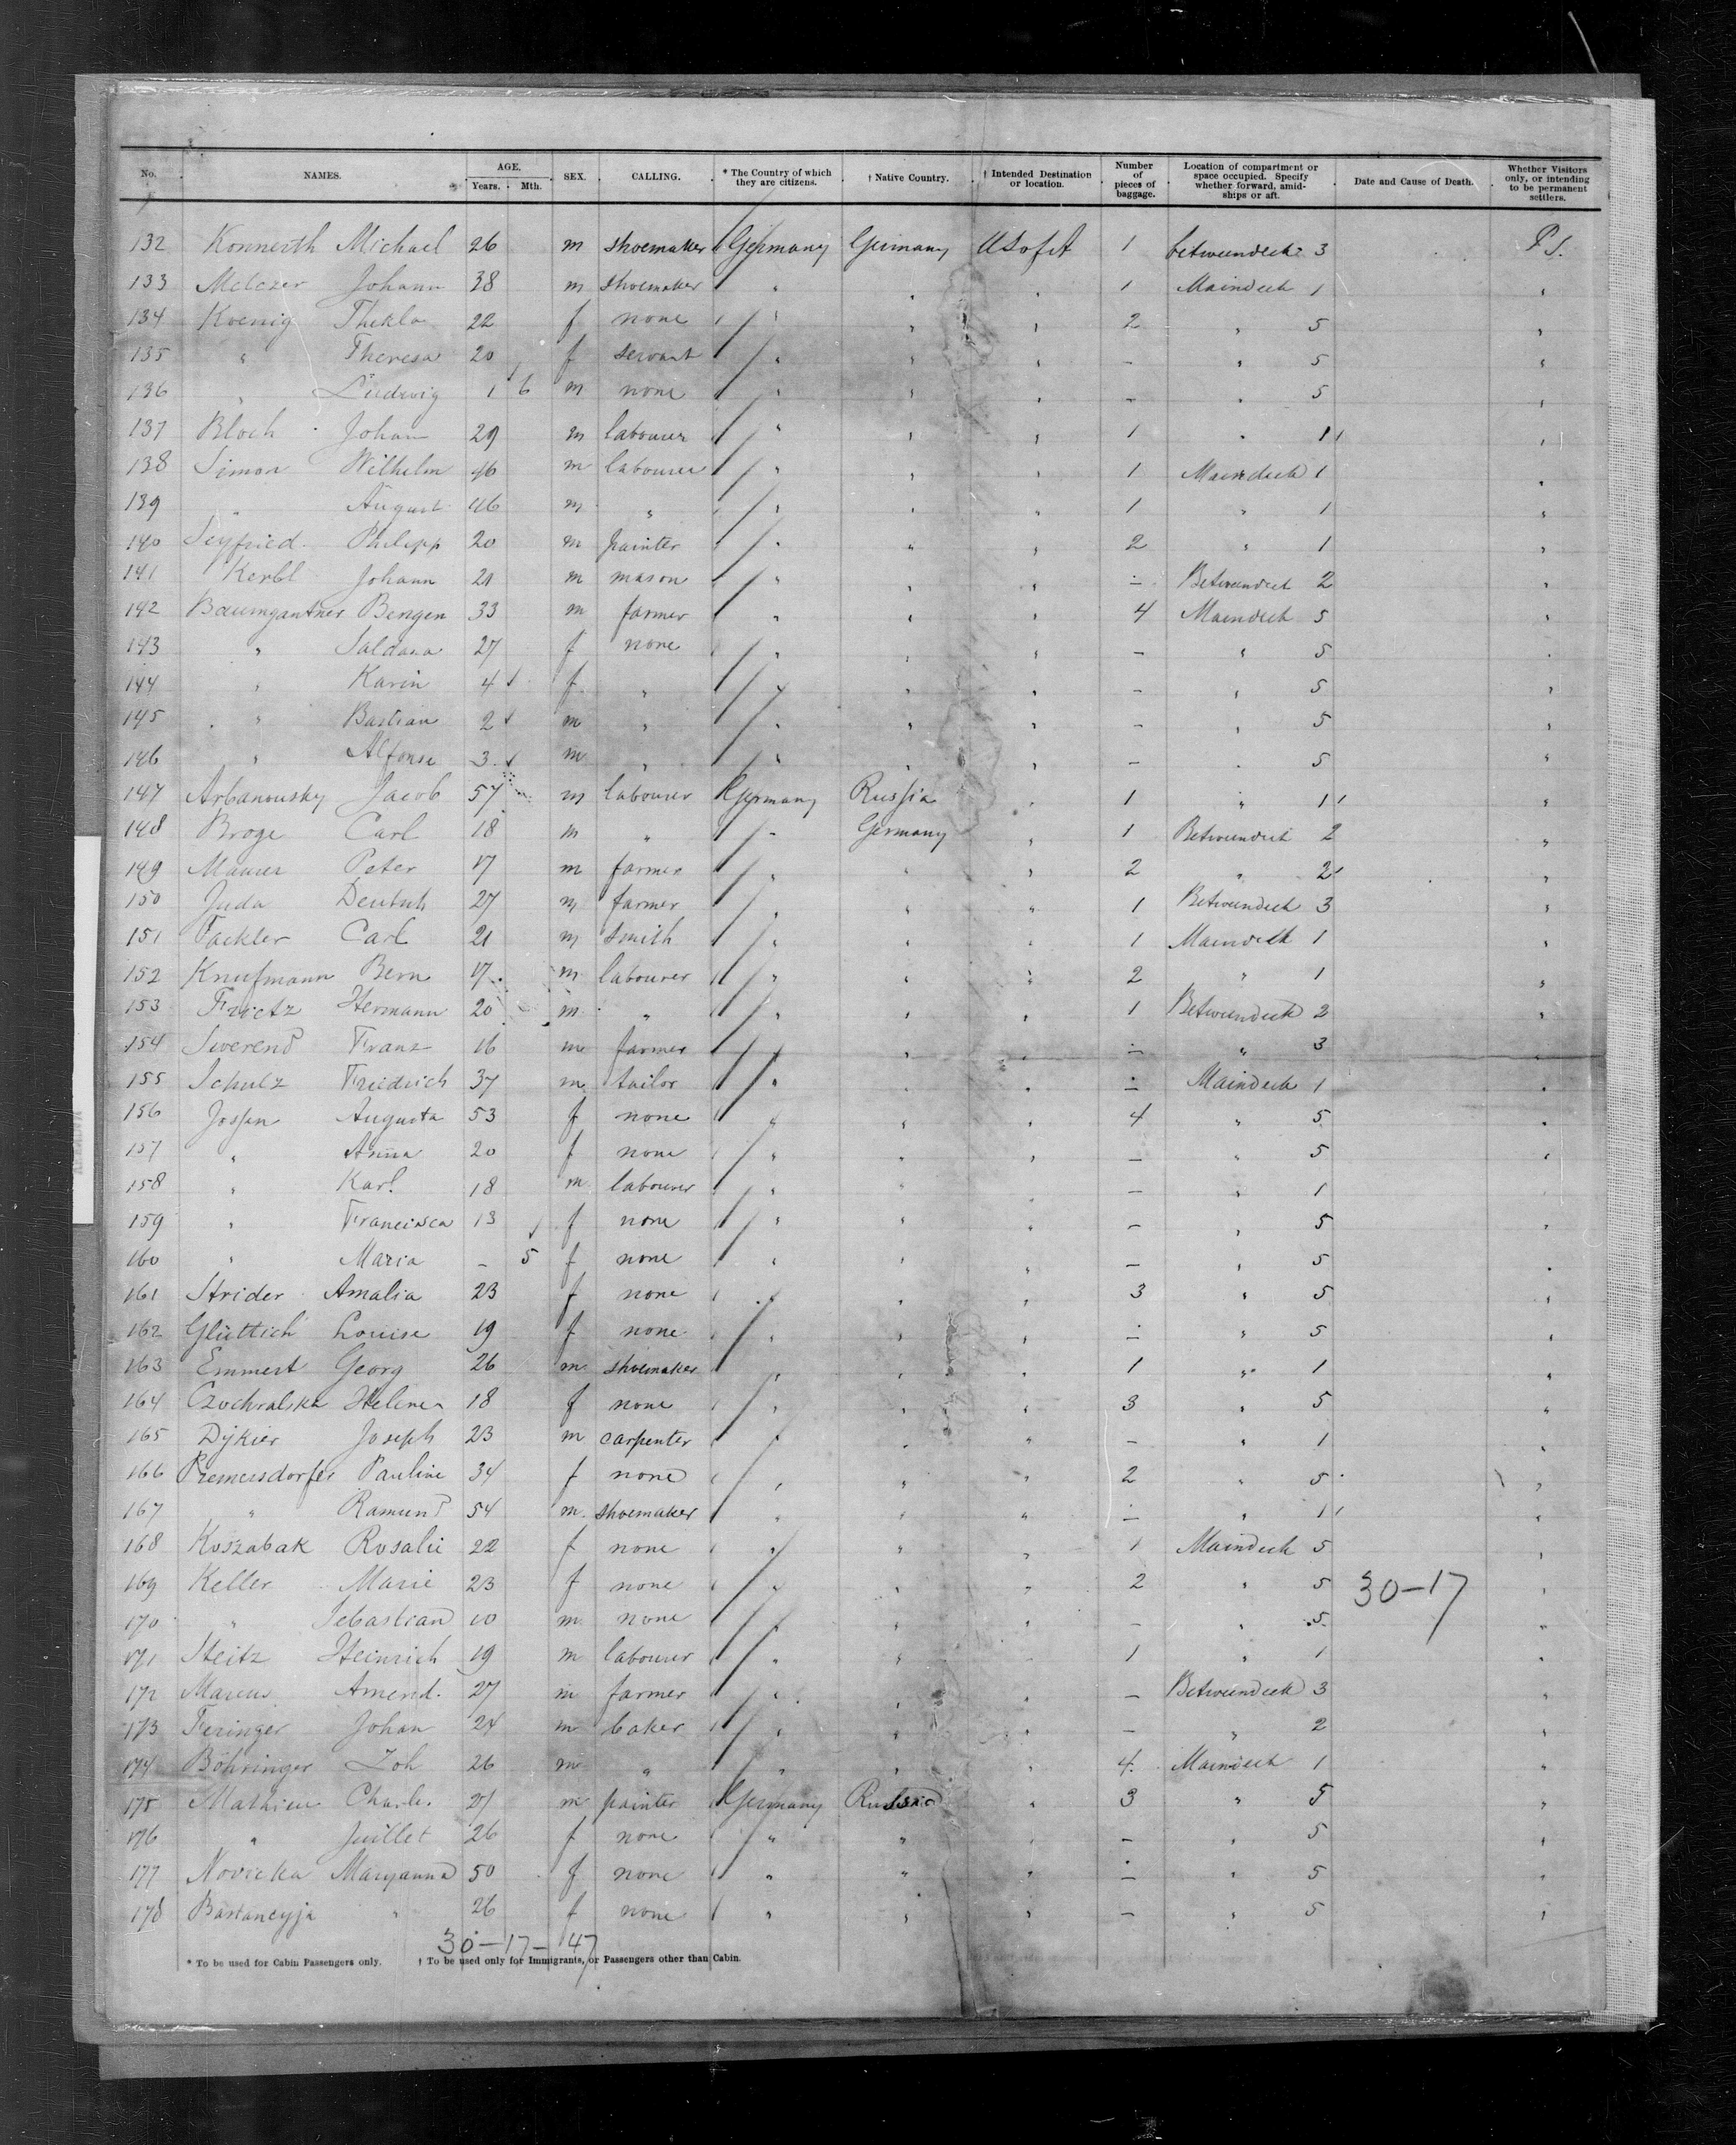 No. NAMES. AGE. Years. Mth. SEX. CALLING. * The Country of which they are citizens. † Native Country. † Intended Destination or location. Number of pieces of baggage. Location of compartment or space occupied. Specify whether forward, amidships or aft. Date and Cause of Death. Whether Visitors only, or intending to be permanent settlers.
132 Konnerth Michael 26 m shoemaker Germany Germany U S of A 1 betweendeck 3 P S.
133 Melczer Johann 38 m shoemaker " " " 1 Maindeck 1 "
134 Koenig Thekla 22 f none " " " 2 " 5 "
135 " Theresa 20 f servant " " " - " 5 "
136 " Ludwig 1 6 m none " " " - " 5 "
137 Bloch Johan 29 m labourer " " " 1 " 1 "
138 Simon Wilhelm 46 m labourer " " " 1 Maindeck 1 "
139 " August 46 m " " " " 1 " 1 "
140 Seyfried Philipp 20 m painter " " " 2 " 1 "
141 Kerbl Johann 21 m mason " " " - Betweendeck 2 "
142 Baumgantner Bengen 33 m farmer " " " 4 Maindeck 5 "
143 " Saldana 27 f none " " " - " 5 "
144 " Karin 4 f " " " " - " 5 "
145 " Bastian 2 m " " " " - " 5 "
146 " Alfonse 3 m " " " " - " 5 "
147 Arbanousky Jacob 57 m labourer Germany Russia " 1 " 1 "
148 Broge Carl 18 m " " Germany " 1 Betweendeck 2 "
149 Maurer Peter 17 m farmer " " " 2 " 2 "
150 Juda Deutsch 27 m farmer " " " 1 Betweendeck 3 "
151 Fackler Carl 21 m smith " " " 1 Maindeck 1 "
152 Knufmann Bern 17 m labourer " " " 2 " 1 "
153 Frietz Hermann 20 m " " " " 1 Betweendeck 2 "
154 Severend Franz 16 m farmer " " " - " 3 "
155 Schulz Friedrich 37 m tailor " " " - Maindeck 1 "
156 Jossen Augusta 53 f none " " " 4 " 5 "
157 " Anna 20 f none " " " - " 5 "
158 " Karl 18 m labourer " " " - " 1 "
159 " Francisca 13 f none " " " - " 5 "
160 " Maria - 5 f none " " " - " 5 "
161 Strider Amalia 23 f none " " " 3 " 5 "
162 Glüttich Louise 19 f none " " " - " 5 "
163 Emmert Georg 26 m shoemaker " " " 1 " 1 "
164 Czochralska Helene 18 f none " " " 3 " 5 "
165 Dykier Joseph 23 m carpenter " " " - " 1 "
166 Premersdorfer Pauline 34 f none " " " 2 " 5 "
167 " Ramund 54 m shoemaker " " " - " 1 "
168 Koszabak Rosalie 22 f none " " " 1 Maindeck 5 "
169 Keller Marie 23 f none " " " 2 " 5 30-17 "
170 " Sebastian 10 m none " " " - " 5 "
171 Steitz Heinrich 19 m labourer " " " 1 " 1 "
172 Marcus Amend. 27 m farmer " " " - Betweendeck 3 "
173 Feringer Johan 24 m baker " " " - " 2 "
174 Böhringer Joh 26 m " " " " 4 Maindeck 1 "
175 Mathieu Charles 27 m painter Germany Russia " 3 " 5 "
176 " Juillet 26 f none " " " - " 5 "
177 Novicka Maryanna 50 f none " " " - " 5 "
178 Bastancyja " 26 f none " " " - " 5 "
30-17-47
* To be used for Cabin Passengers only. † To be used only for Immigrants, or Passengers other than Cabin.